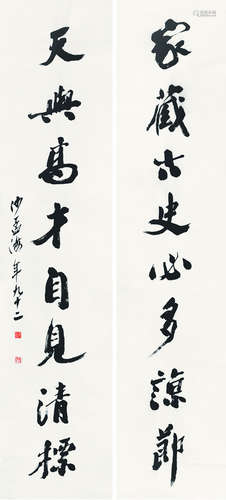 家藏古史必多諒節
天與高才自見清標
沙孟海年九十二